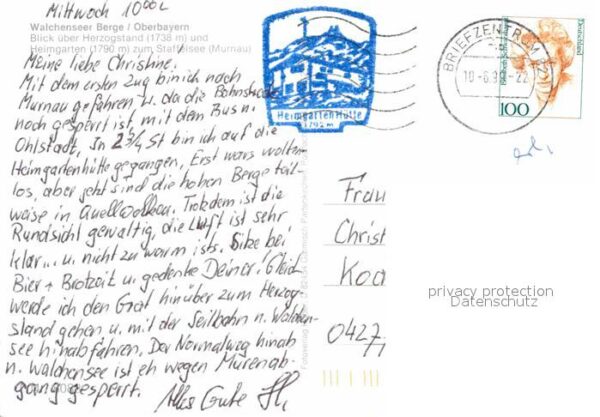 Mittwoch 10⁰⁰h
Walchenseer Berge / Oberbayern
Blick über Herzogstand (1738 m) und
Heimgarten (1790 m) zum Staffelsee (Murnau)
Meine liebe Christine.
Mit dem ersten Zug bin ich nach
Murnau gefahren u. da die Bahnstrecke
noch gesperrt ist mit dem Bus n.
Ohlstadt. In 2 3/4 St bin ich auf die
Heimgartenhütte gegangen, Erst wars wolken-
los, aber jetzt sind die hohen Berge teil-
weise in Quellwolken. Trotzdem ist die
Rundsicht gewaltig, die Luft ist sehr
klar... u. nicht zu warm ists. Sitze bei
Bier + Brotzeit u. gedenke Deiner! Gleich
werde ich den Grat hinüber zum Herzog-
stand gehen u. mit der Seilbahn n. Walchen-
see hinabfahren. Der Normalweg hinab
n. Walchensee ist eh wegen Murenab-
gang gesperrt.
Alles Gute
Heimgarten Hütte
1790 m
BRIEFZENTRUM
-22
Deutschland
100
Frau
Christ
0427
privacy protection
Datenschutz